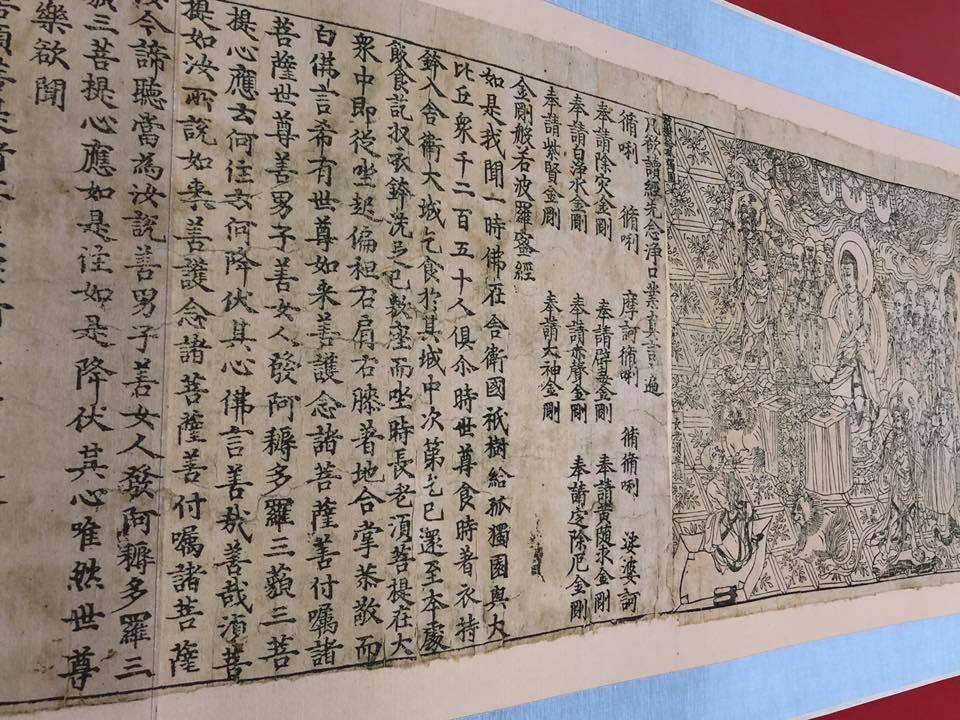 凡欲讀經先念淨口業真言一遍
脩唎 脩唎 摩訶脩唎 脩脩唎 娑婆訶
奉請除灾金剛 奉請辟毒金剛 奉請黃隨求金剛
奉請白淨水金剛 奉請赤聲金剛 奉請定除厄金剛
奉請紫賢金剛 奉請大神金剛
金剛般若波羅蜜經
如是我聞一時佛在舍衛國祇樹給孤獨園與大
比丘衆千二百五十人俱尒時世尊食時著衣持
鉢入舍衛大城乞食於其城中次第乞已還至本處
飯食訖收衣鉢洗足已敷座而坐時長老須菩提在大
衆中即從坐起偏袒右肩右膝著地合掌恭敬而
白佛言希有世尊如来善護念諸菩薩善付囑諸
菩薩世尊善男子善女人發阿耨多羅三藐三菩
提心應云何住云何降伏其心佛言善哉善哉須菩
提如汝所說如来善護念諸菩薩善付囑諸菩薩
汝今諦聽當為汝說善男子善女人發阿耨多羅三
藐三菩提心應如是住如是降伏其心唯然世尊
樂欲聞